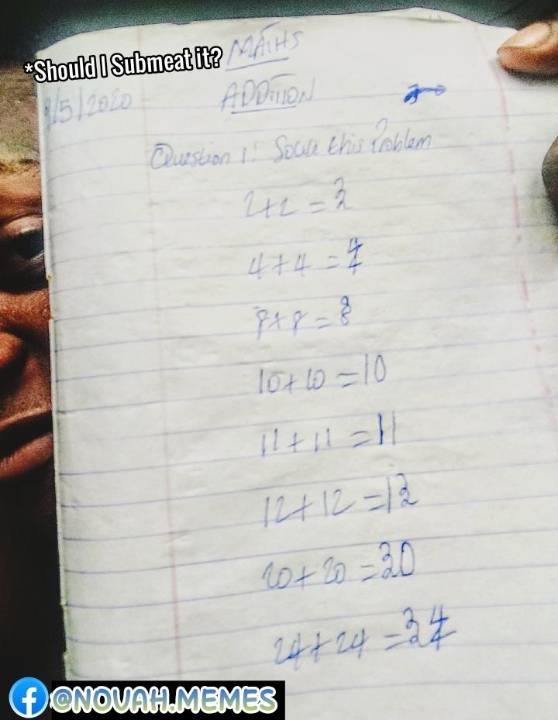 *Should I Submeat it?
MATHS
9/5/2020
ADDITION
Question 1: Solve this Problem
2+2 = 2
4+4 = 4
8+8 = 8
10+10 = 10
11+11 = 11
12+12 = 12
20+20 = 20
24+24 = 24
f @NOVAH.MEMES